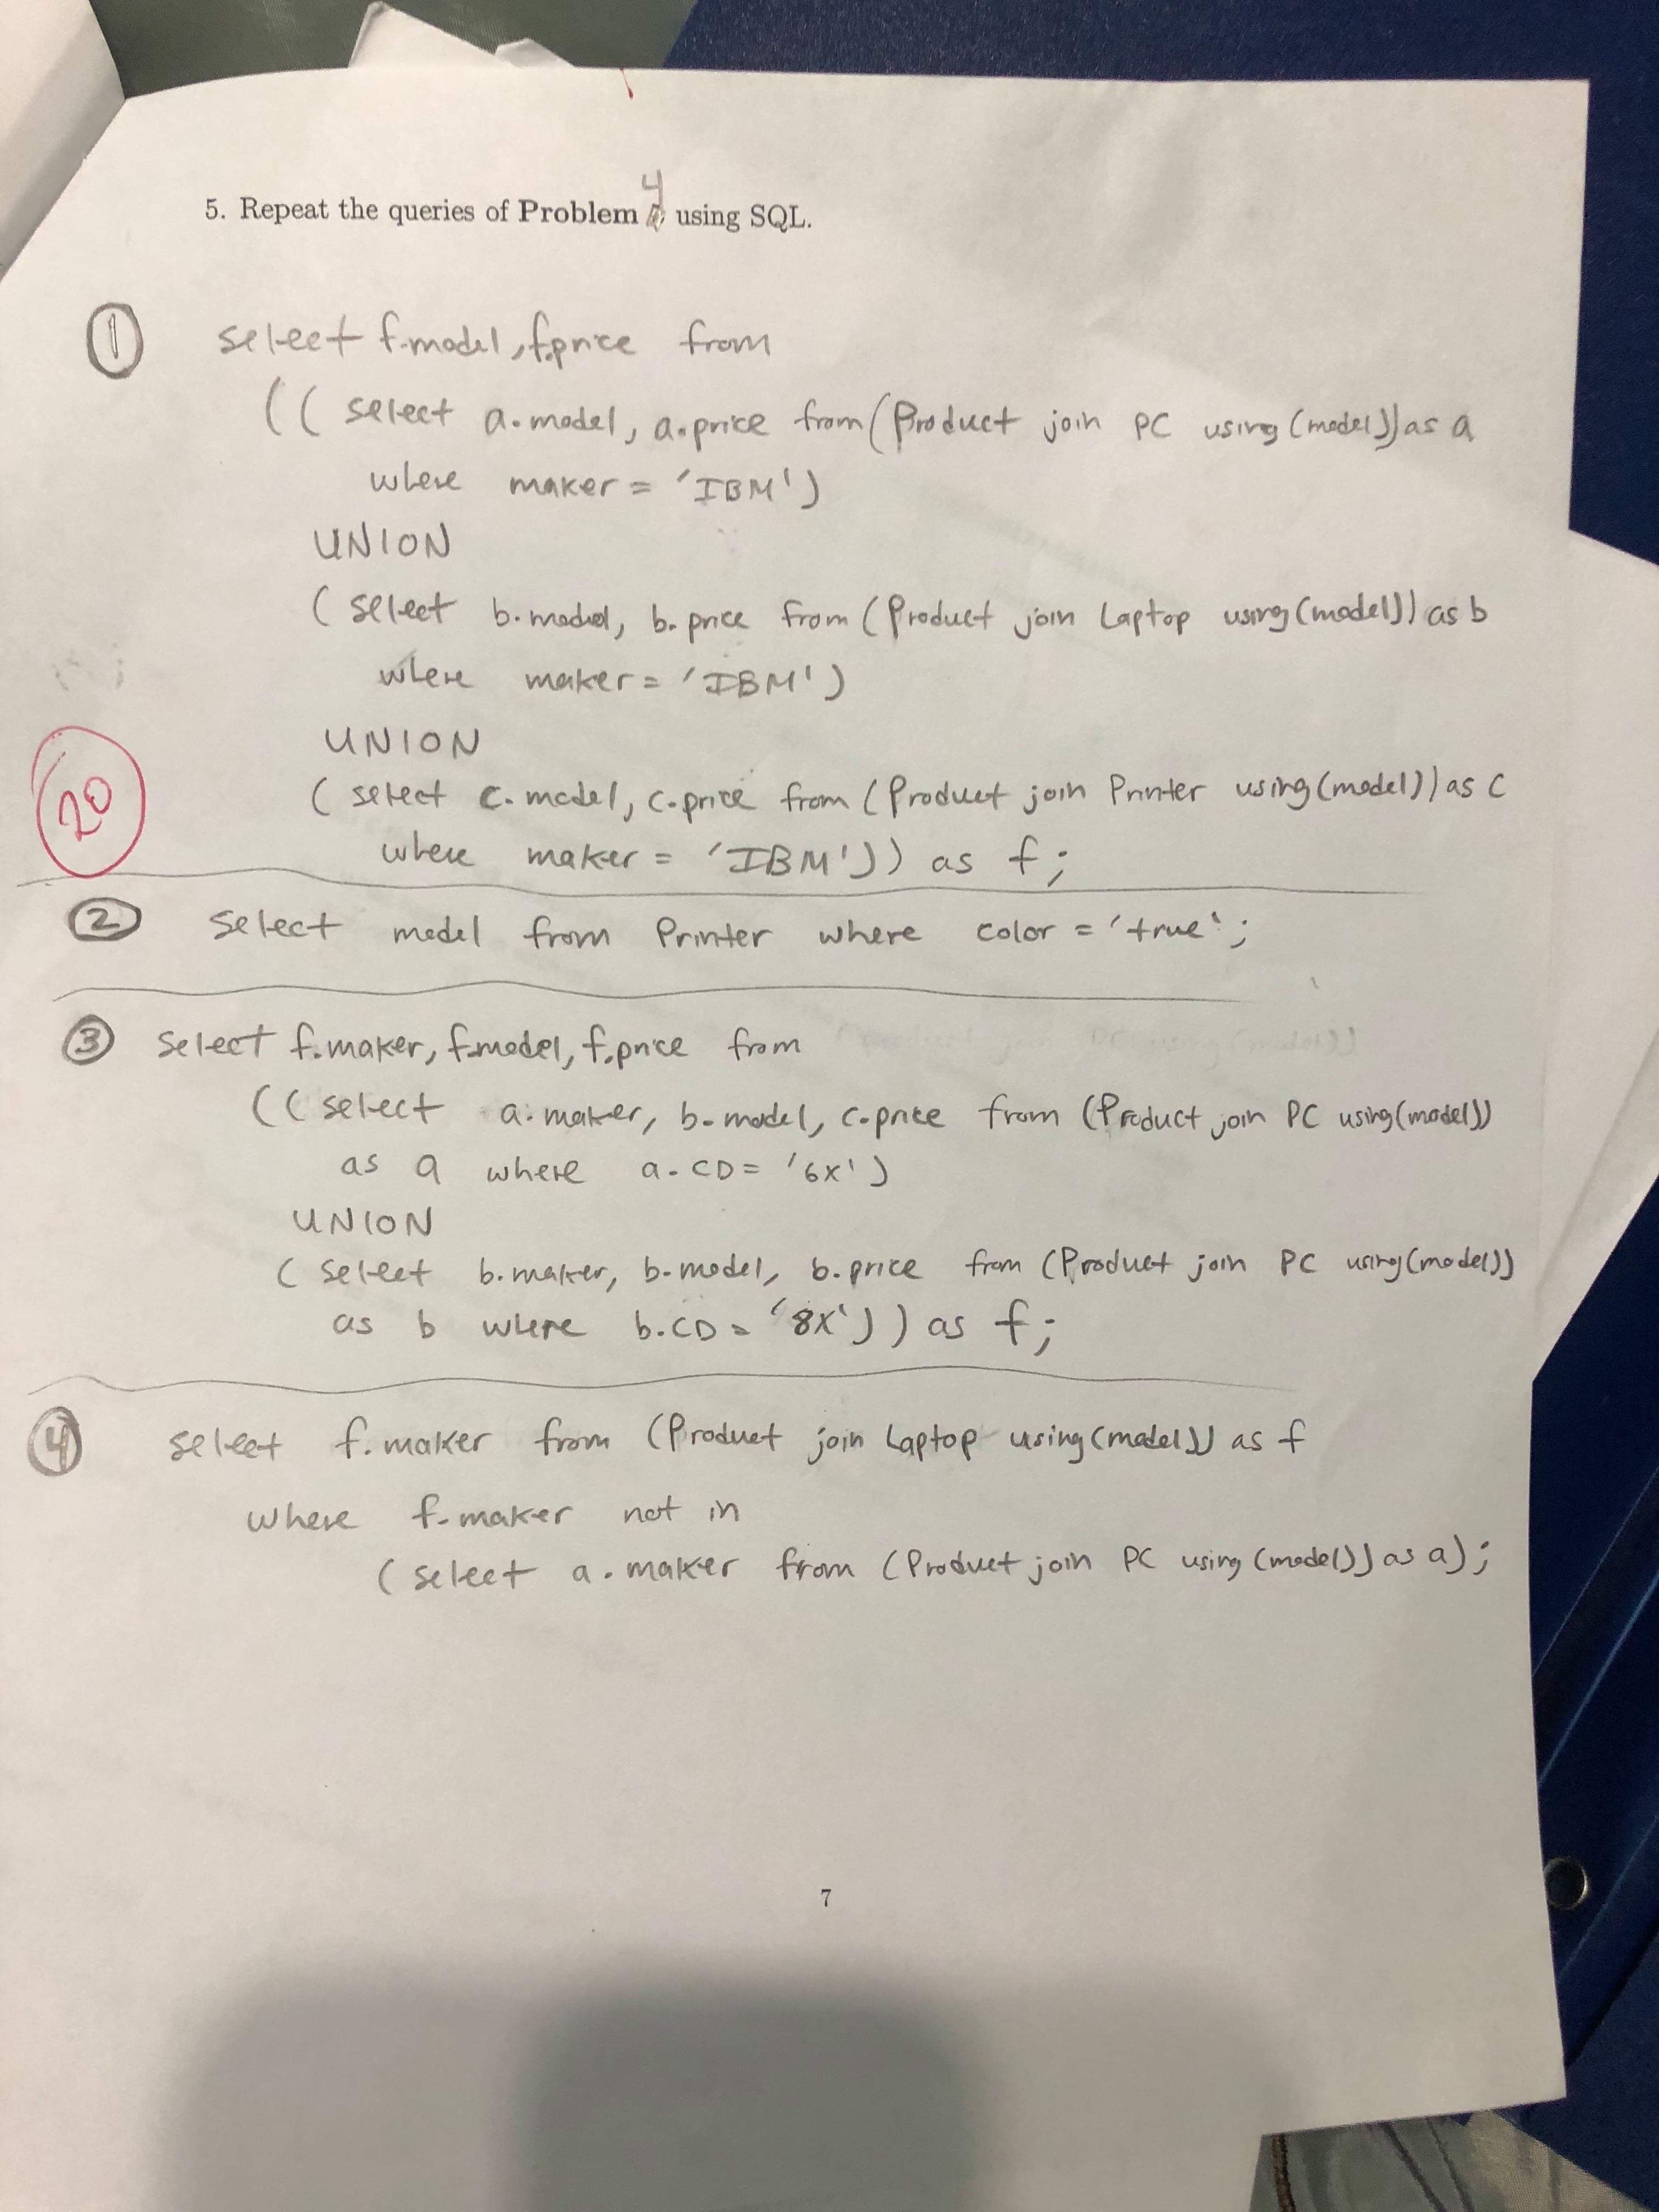 5. Repeat the queries of Problem 4 using SQL.
1 select f.model, f.price from
(( select a.model, a.price from (Product join PC using (model)) as a
where maker = 'IBM')
UNION
( select b.model, b.price from (Product join Laptop using (model)) as b
where maker = 'IBM')
UNION
( select c.model, c.price from (Product join Printer using (model)) as c
where maker = 'IBM')) as f;
20
2 select model from Printer where color = 'true';
3 select f.maker, f.model, f.price from
(( select a.maker, b.model, c.price from (Product join PC using (model))
as a where a.CD = '6X')
UNION
( select b.maker, b.model, b.price from (Product join PC using (model))
as b where b.CD = '8X')) as f;
4 select f.maker from (Product join Laptop using (model)) as f
where f.maker not in
( select a.maker from (Product join PC using (model)) as a);
7